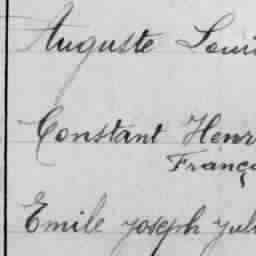 Auguste Loui
Constant Henr
Franço
Emile Joseph Jul